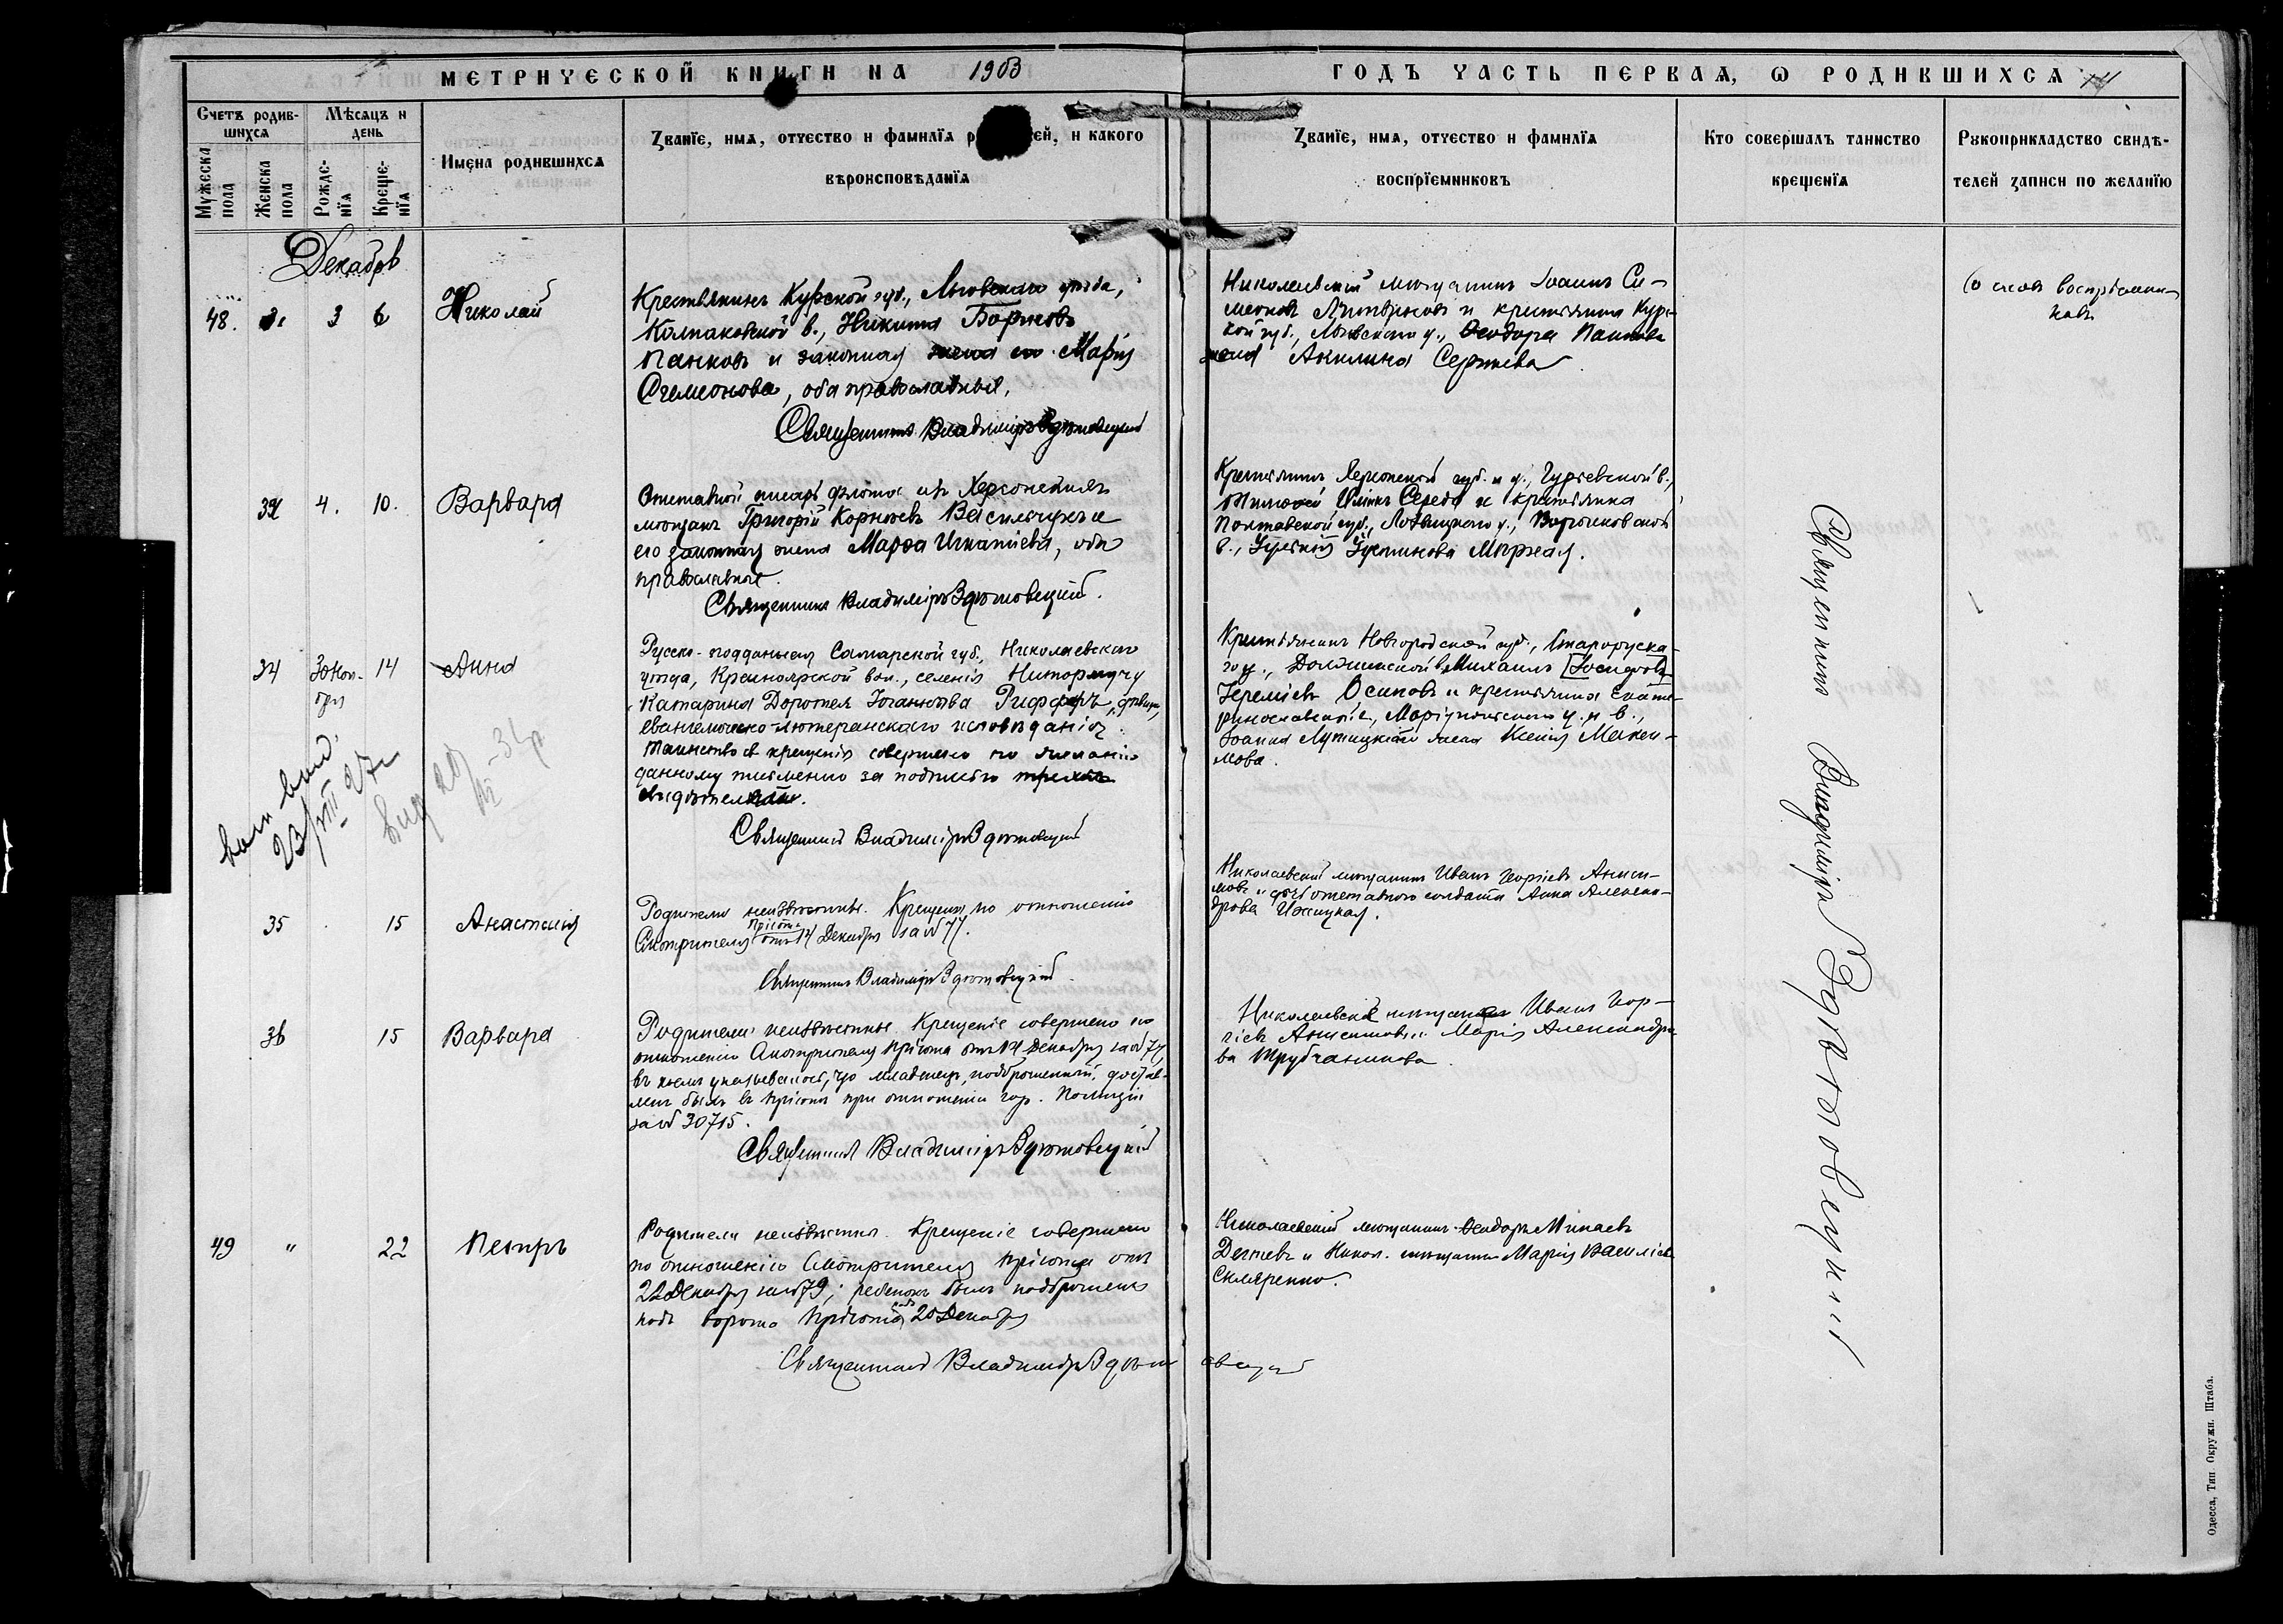 МЕТРИЧЕСКОЙ КНИГИ НА 1903
ГОДЪ ЧАСТЬ ПЕРВАЯ, Ѡ РОДИВШИХСЯ
Счетъ родив-
шихся
Мѣсяцъ и
день
Мужеска
пола
Женска
пола
Рожде-
нїя
Креще-
нїя
Имена родившихся
Званїе, имя, отчество и фамилїя р ей, и какого
вѣроисповѣданїя
Званїе, имя, отчество и фамилїя
воспрїемниковъ
Кто совершалъ таинство
крещенїя
Рукоприкладство свидѣ-
телей записи по желанїю
Декабрь
48. 3 6 Николай
Крестьянинъ Курской губ., Льговскаго уѣзда,
Колпаковской в., Никита
Панковъ и законная жена его Марія
Симеонова, оба православные.
Священникъ Владиміръ Здѣтовецкій
Николаевскій мѣщанинъ Іоаннъ Си-
меоновъ и крестьянина Кур-
кой губ., Льговскаго у., Ѳеодора Панкова
жена Акилина Сергѣева
Со словъ воспріемни-
ковъ
4. 10. Варвара
Отставной писарь флота изъ Херсонскихъ
мѣщанъ Григорій Корнѣевъ Васильчукъ и
его законная жена Марѳа Игнатіева, оба
православные.
Священникъ Владиміръ Здѣтовецкій.
Крестьянинъ Херсонской губ. и у., Гурьевской в.,
Середа и крестьянка
Полтавской губ., Лохвицкаго у.,
в., Устинова
34 30 Ноя-
бря 14 Анна
Русско-подданная Самарской губ., Николаевскаго
уѣзда, Красноярской вол., селенія
Катарина Доротея Іоганнова дѣвица,
евангелическо-лютеранскаго исповѣданія.
Таинство св. крещенія совершено по желанію
данному письменно за подписью трехъ
свидѣтелей.
Священникъ Владиміръ Здѣтовецкій
Крестьянинъ Новгородской губ., Старорусска-
го у., Должинской в. Михаилъ Іосифовъ
Іереміевъ Осиповъ и крестьянина Екате-
ринославской г., Маріупольскаго у. и в.,
Іоанна жена Ксенія Макси-
мова.
23/VIII 27
35 15 Анастасія
Родители неизвѣстны. Крещена по отношенію
Смотрителя Пріюта отъ 14 Декабря за № 77.
Священникъ Владиміръ Здѣтовецкій
Николаевскій мѣщанинъ Иванъ Георгіевъ Аниси-
мовъ и дочь отставного солдата Анна Алексан-
дрова
36 15 Варвара
Родители неизвѣстны. Крещеніе совершено по
отношенію Смотрителя Пріюта отъ 14 Декабря за № 74,
въ коемъ указывалось, что младенецъ, подброшенный, достав-
ленъ былъ въ пріютъ при отношеніи гор. Полиціи
за № 30715.
Священникъ Владиміръ Здѣтовецкій
Николаевскіе мѣщане Иванъ Геор-
гіевъ Анисимовъ и Марія Александро-
ва Трубчанинова
49 " 22 Петръ
Родители неизвѣстны. Крещеніе совершено
по отношенію Смотрителя Пріюта отъ
22 Декабря за № 79; ребенокъ былъ подброшенъ
подъ ворота Пріюта 20 Декабря
Священникъ Владиміръ Здѣтовецкій
Николаевскій мѣщанинъ Ѳеодоръ Минаевъ
и Никол. мѣщанка Марія Василіева
Скляренко.
Священникъ Владиміръ Здѣтовецкій
Одесса, Тип. Окружн. Штаба.